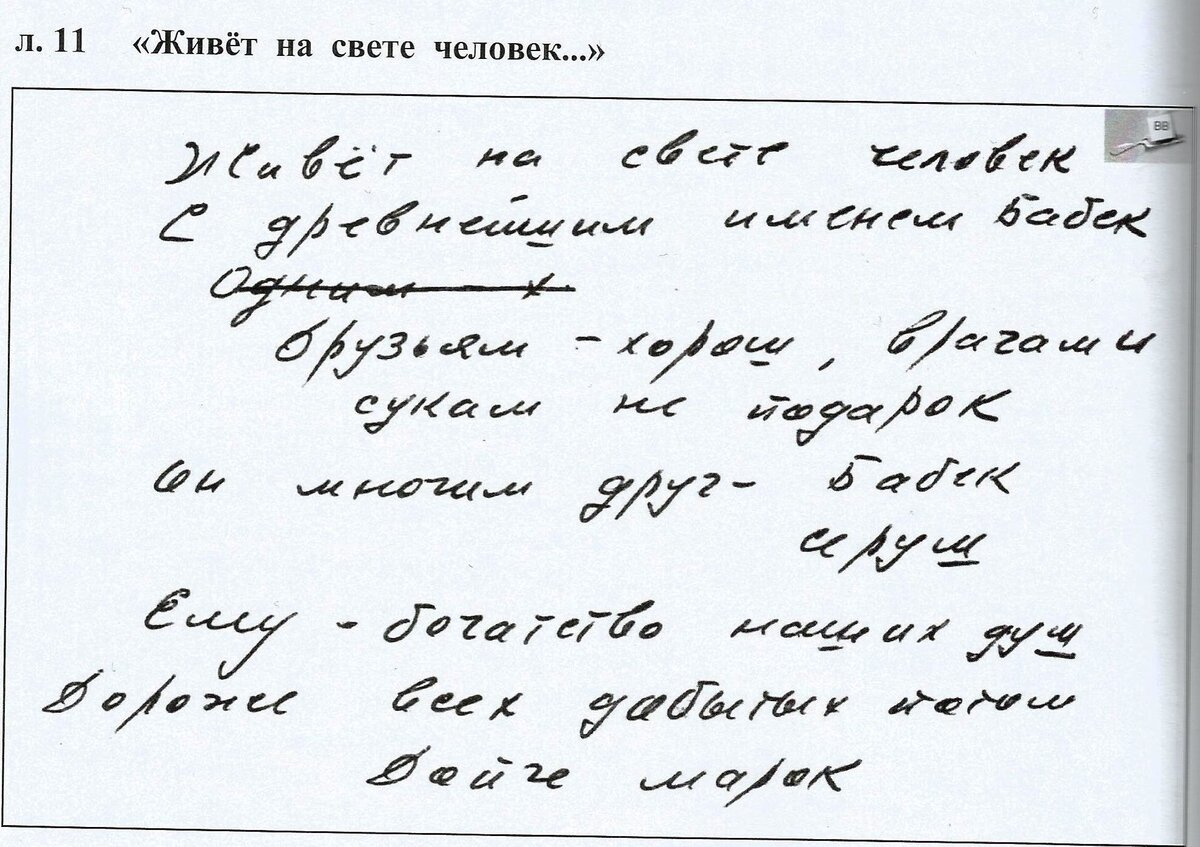 л. 11 «Живёт на свете человек...»
ВВ
Живёт на свете человек
С древнейшим именем Бабек
Одним - х
Друзьям - хорош, врагам и
сукам не подарок
Он многим друг - Бабек
Серуш
Ему - богатство наших душ
Дороже всех добытых потом
Дойче марок